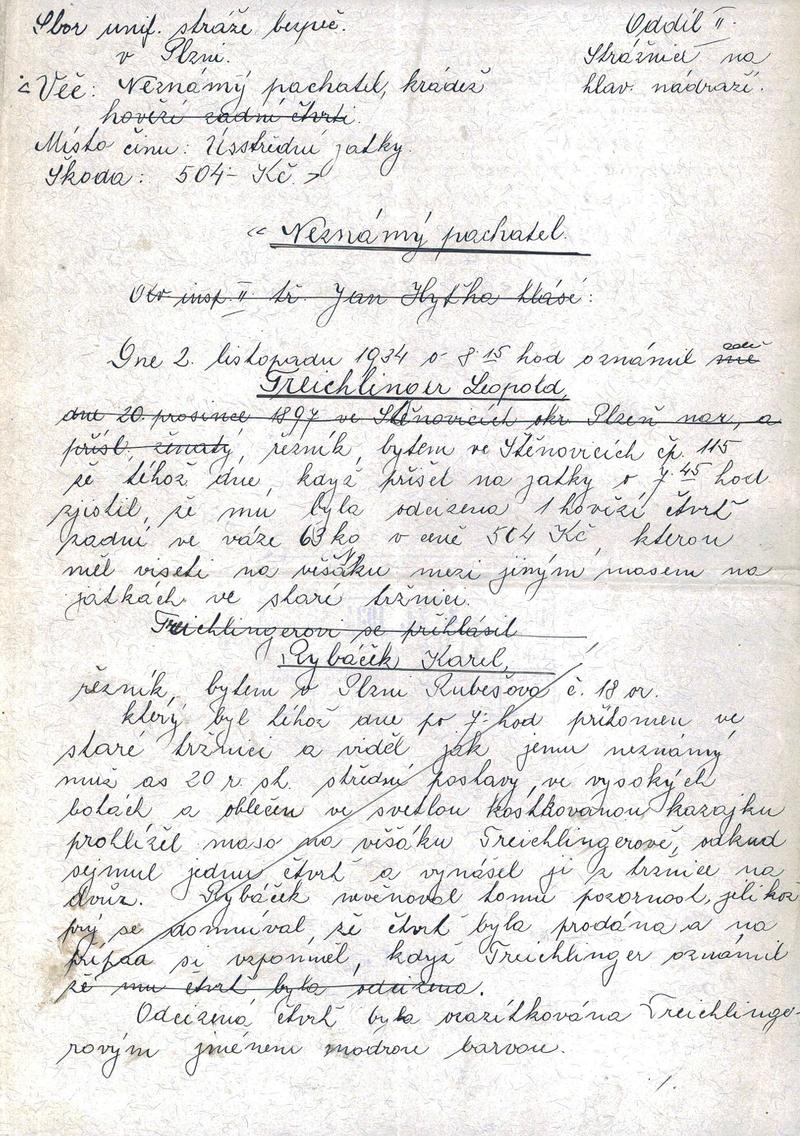 Sbor unif. stráže bezpeč.
v Plzni.
Oddíl II.
Strážnice na
hlav. nádraží.
Věc: Neznámý pachatel, krádež
hovězí zadní čtvrti.
Místo činu: Ústřední jatky.
Škoda: 504- Kč.
Neznámý pachatel.
insp. II. tř. Jan Hytha hlásí:
Dne 2. listopadu 1934 o 8 15 hod oznámil zdejší
Treichlinger Leopold,
dne 20. prosince 1897 ve Štěnovicích okr Plzeň nar, a
přísl, ženatý, řezník, bytem ve Štěnovicích čp. 115
že téhož dne, když přišel na jatky o 7 45 hod
zjistil, že mu byla odcizena 1 hovězí čtvrť
zadní ve váze 63 kg v ceně 504 Kč, kterou
měl viseti na věšáku mezi jiným masem na
jatkách ve staré tržnici.
Treichlingerovi se přihlásil
Rybáček Karel,
řezník, bytem v Plzni Rubešova č. 18 or.
který byl téhož dne po 7. hod přítomen ve
staré tržnici a viděl jak jemu neznámý
muž as 20 r. st. střední postavy, ve vysokých
botách a oblečen ve světlou kostkovanou kazajku
prohlížel maso na věšáku Treichlingerově, odkud
sejmul jednu čtvrť a vynášel ji z tržnice na
dvůr. Rybáček nevěnoval tomu pozornost, jelikož
prý se domníval že čtvrť byla prodána a na
případ si vzpomněl, když Treichlinger oznámil
že mu čtvrť byla odcizena.
Odcizená čtvrť byla orazítkována Treichlinge-
rovým jménem modrou barvou.
./.